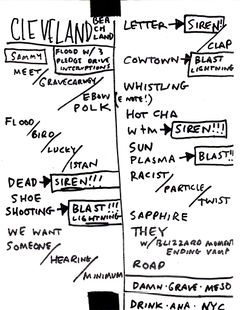 CLEVELAND BEA
CH
LAND
SAMMY
FLOOD W/ 3
PLEDGE DRIVE
INTERUPTIONS
MEET
GRAVECARNEY
EBOW
POLK
FLOOD/
BIRD/
LUCKY/
ISTAN
DEAD → SIREN!!!
SHOE
SHOOTING → BLAST!!!
LIGHTNING
WE WANT
SOMEONE/
HEARING/
MINIMUM
LETTER → SIREN!
CLAP
COWTOWN → BLAST
LIGHTNING
WHISTLING
(E NOTE!)
HOT CHA
W+M → SIREN!!!
SUN
PLASMA → BLAST!!
RACIST/
PARTICLE/
TWIST
SAPPHIRE
THEY
W/ BLIZZARD MOMENT
ENDING VAMP
ROAD
DAMN · GRAVE · MESO
DRINK · ANA · NYC